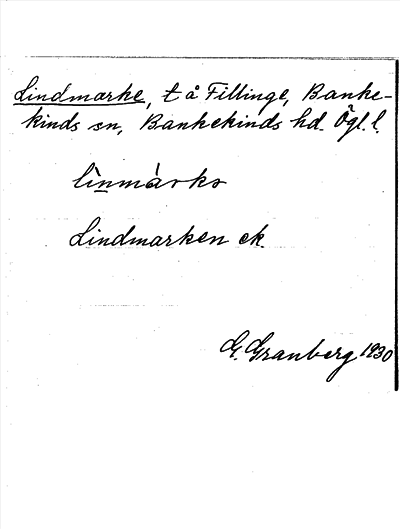 Lindmarke, t å Fillinge, Banke-
kinds sn, Bankekinds hd. Ögl. l.
lìnmàrkə
Lindmarken ek.
G. Granberg 1930